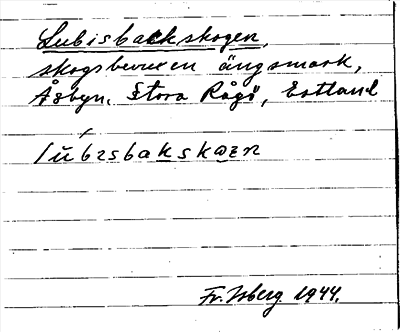 Lubisbackskogen,
skogsbevuxen ängsmark,
Åsbyn. Stora Rågö, Estland
lúbɪsbakskɷɛn
Fr. Isberg 1944.